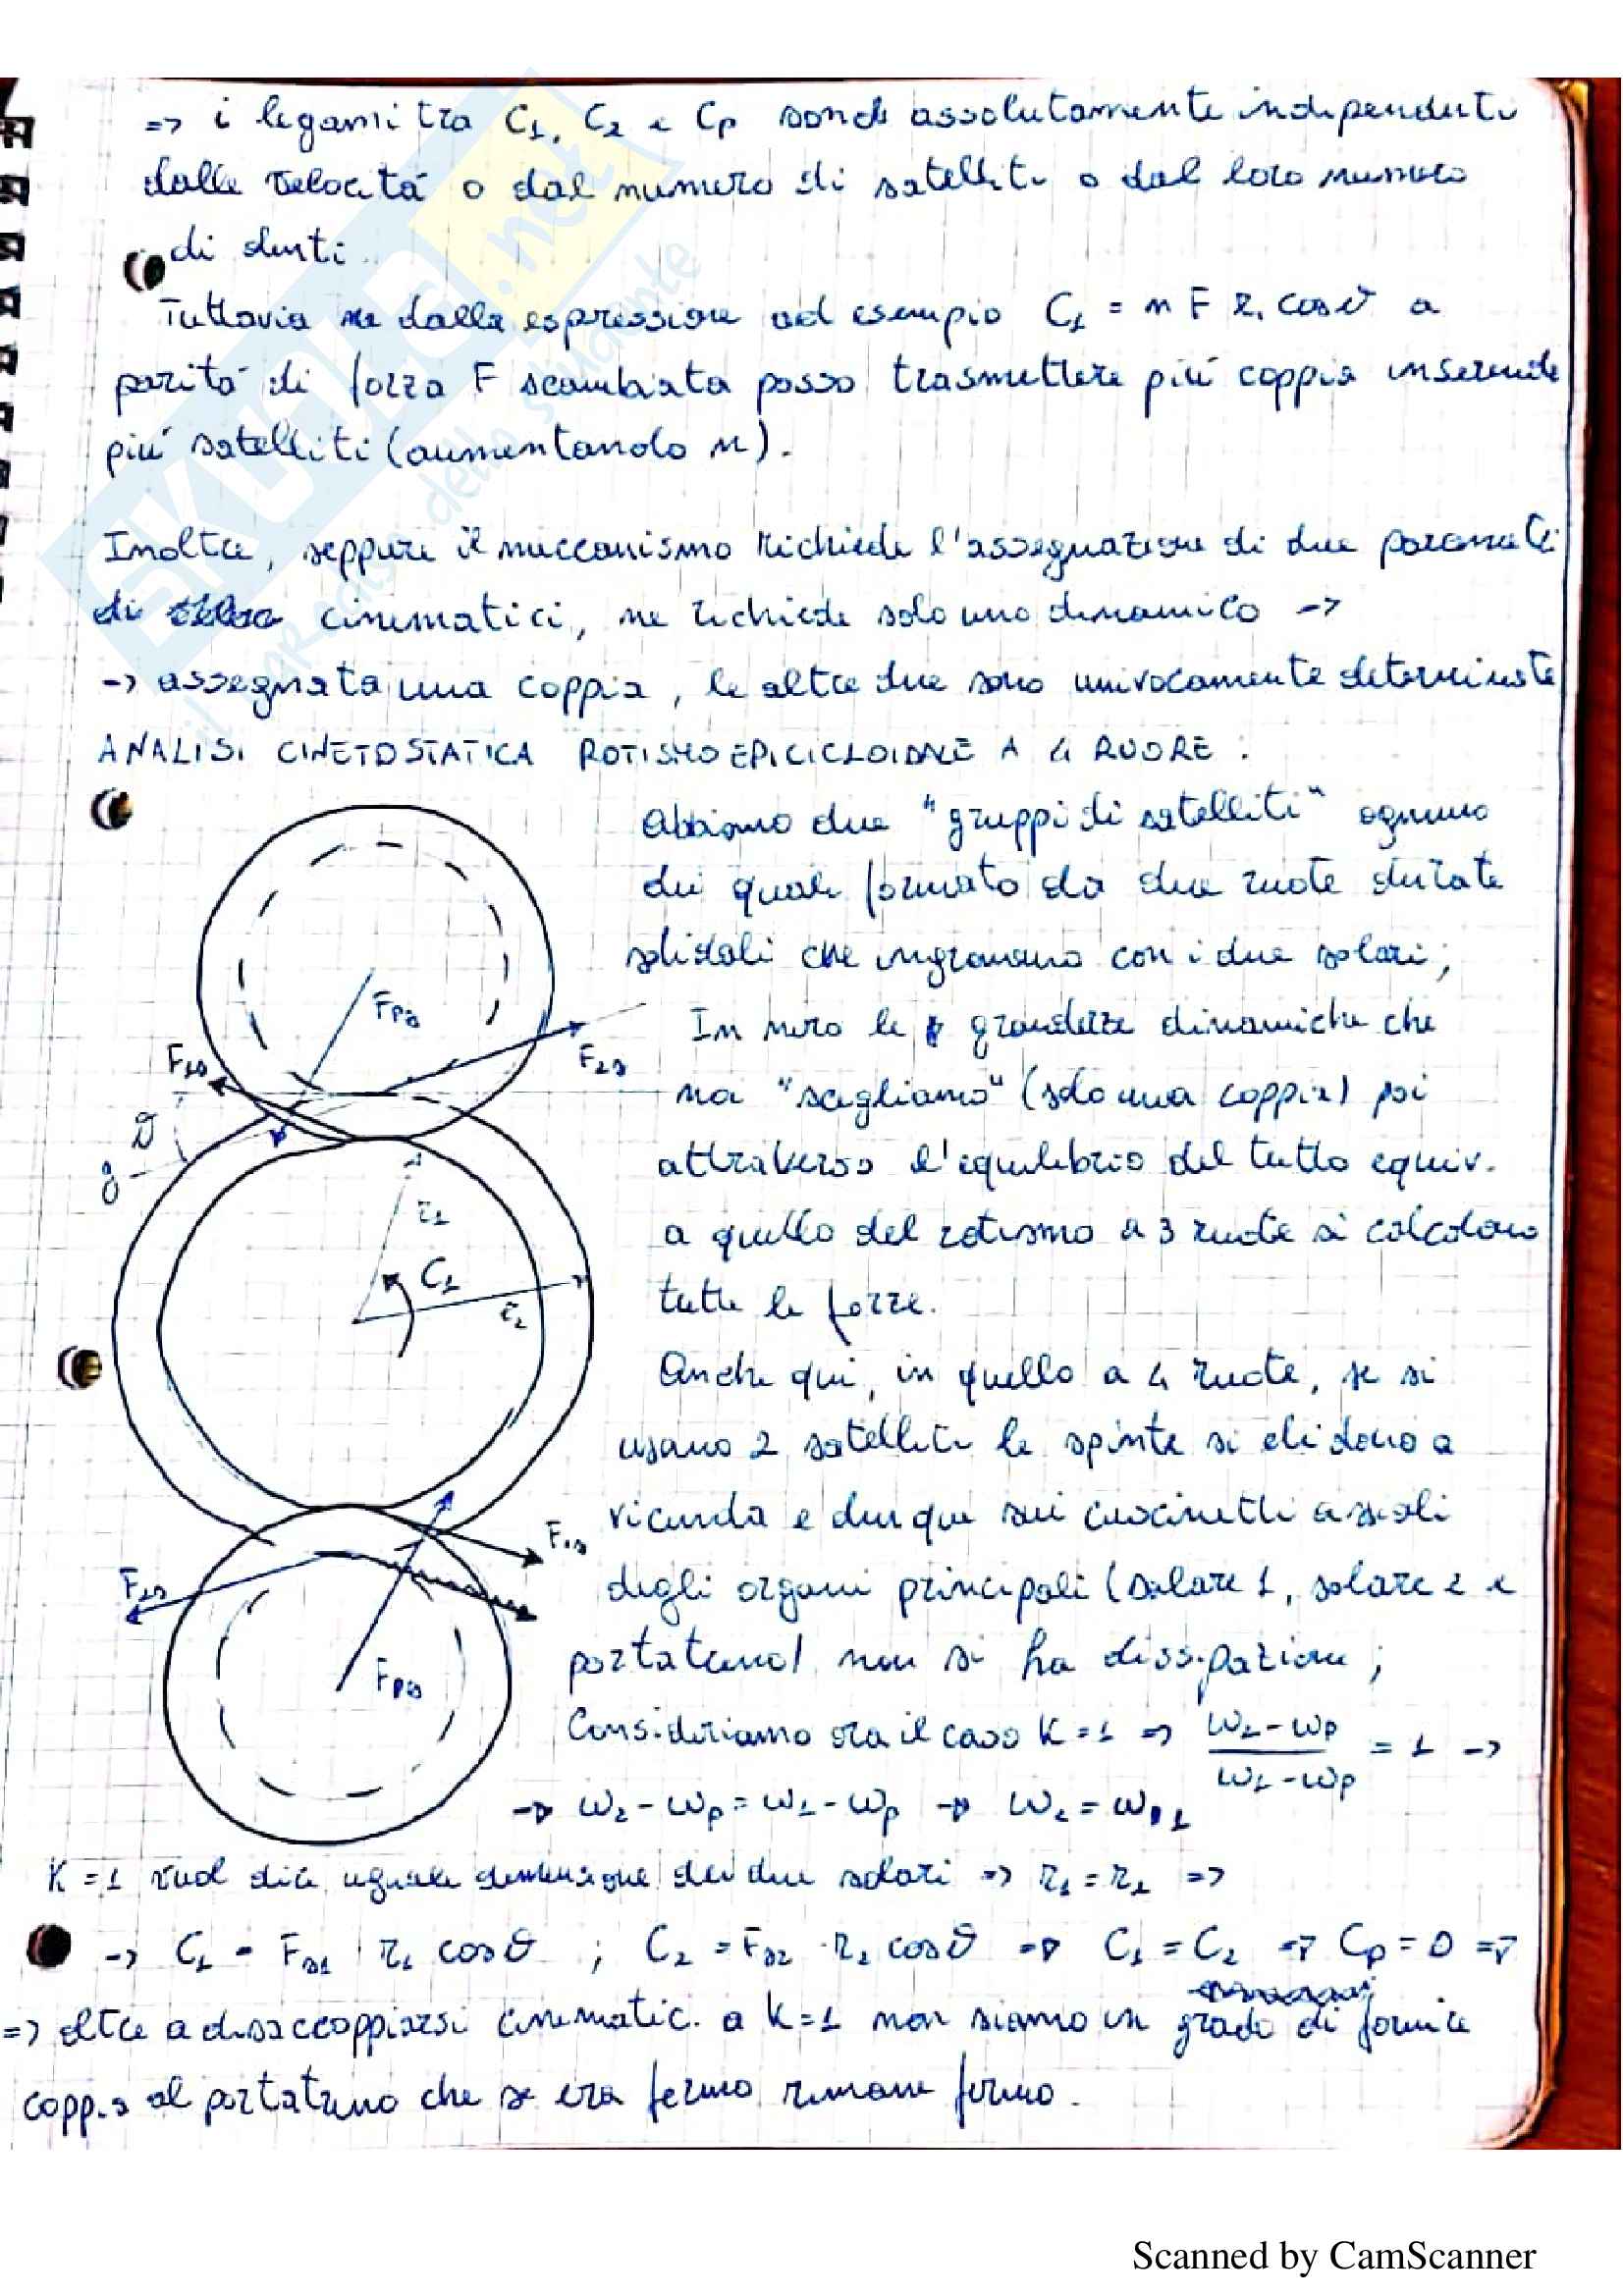 => i legami tra C1, C2 e Cp sono assolutamente indipendenti
dalle velocità o dal numero di satelliti o dal loro numero
di denti.
Tuttavia se dalla espressione ad esempio C1 = n F r1 cosϑ a
parità di forza F scambiata posso trasmettere più coppia inserendo
più satelliti (aumentando n).
Inoltre, seppure il meccanismo richiede l'assegnazione di due parametri
di cinematici, ne richiede solo uno dinamico ->
-> assegnata una coppia, le altre due sono univocamente determinate
ANALISI CINETOSTATICA ROTISMO EPICICLOIDALE A 4 RUOTE :
Abbiamo due "gruppi di satelliti" ognuno
dei quali formato da due ruote dentate
solidali che ingranano con i due solari;
In nero le grandezze dinamiche che
noi "scegliamo" (solo una coppia) poi
attraverso l'equilibrio del tutto equiv.
a quello del rotismo a 3 ruote si calcolano
tutte le forze.
Anche qui, in quello a 4 ruote, se si
usano 2 satelliti le spinte si elidono a
vicenda e dunque sui cuscinetti assiali
degli organi principali (solare 1, solare 2 e
portatreno) non si ha dissipazione;
Consideriamo ora il caso K=1 => (ω2-ωp)/(ω1-ωp) = 1 ->
-> ω2-ωp = ω1-ωp -> ω2 = ω1
K=1 vuol dire uguale dimensione dei due solari => r1 = r2 =>
-> C1 = Fs1 r1 cosϑ ; C2 = Fs2 · r2 cosϑ => C1 = C2 => Cp = 0 =>
=> oltre a disaccoppiarsi cinematic. a K=1 non siamo in grado di fornire
coppia al portatreno che se era fermo rimane fermo.
Fps
F1s
F2s
ϑ
r1
C1
r2
F1s
F2s
Fps
SKUOLA.net
il paradiso dello studente
Scanned by CamScanner